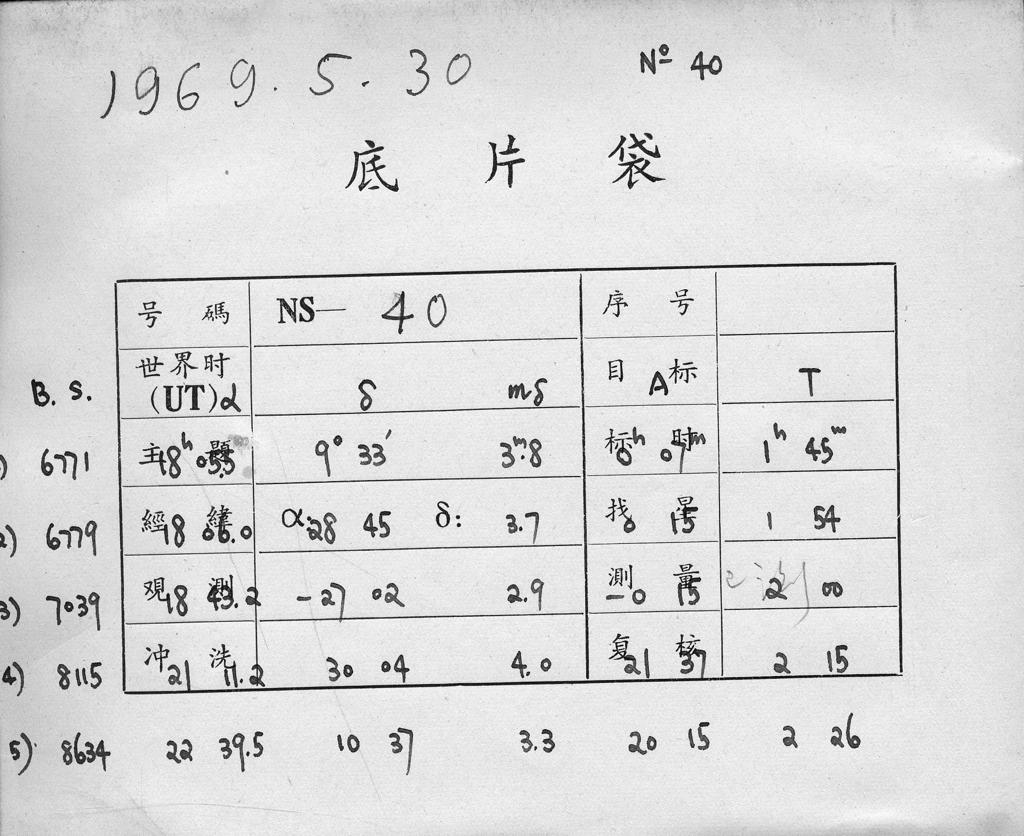 1969. 5. 30 № 40
底片袋
号碼 NS— 40 序号
世界时 目标
B. S. (UT) α δ mδ A T
主題 标时
1) 6771 18ʰ 05.5 9° 33′ 3ᵐ.8 0ʰ 07ᵐ 1ʰ 45ᵐ
經緯 α: δ: 找星
2) 6779 18 06.0 28 45 3.7 0 15 1 54
观測 測量 已测
3) 7039 18 43.2 −27 02 2.9 −0 15 2 00
冲洗 复核
4) 8115 21 11.2 30 04 4.0 21 37 2 15
5) 8634 22 39.5 10 37 3.3 20 15 2 26